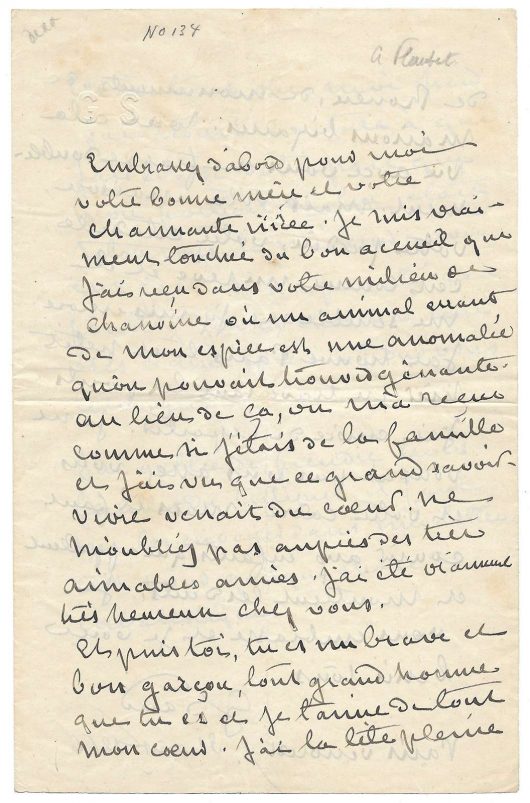 No 134
a Flaubert
Embrassez d'abord pour moi
votre bonne mère et votre
charmante nièce. Je suis vrai-
ment touchée du bon accueil que
j'ai reçu dans votre milieu de
chanoine où un animal errant
de mon espèce est une anomalie
qu'on pouvait trouver gênante.
au lieu de ça, on m'a reçue
comme si j'étais de la famille
et j'ai vu que ce grand savoir-
vivre venait du cœur. ne
m'oubliez pas auprès des très
aimables amies. j'ai été vraiment
très heureuse chez vous.
Et puis toi, tu es un brave et
bon garçon, tout grand homme
que tu es et je t'aime de tout
mon cœur. J'ai la tête pleine